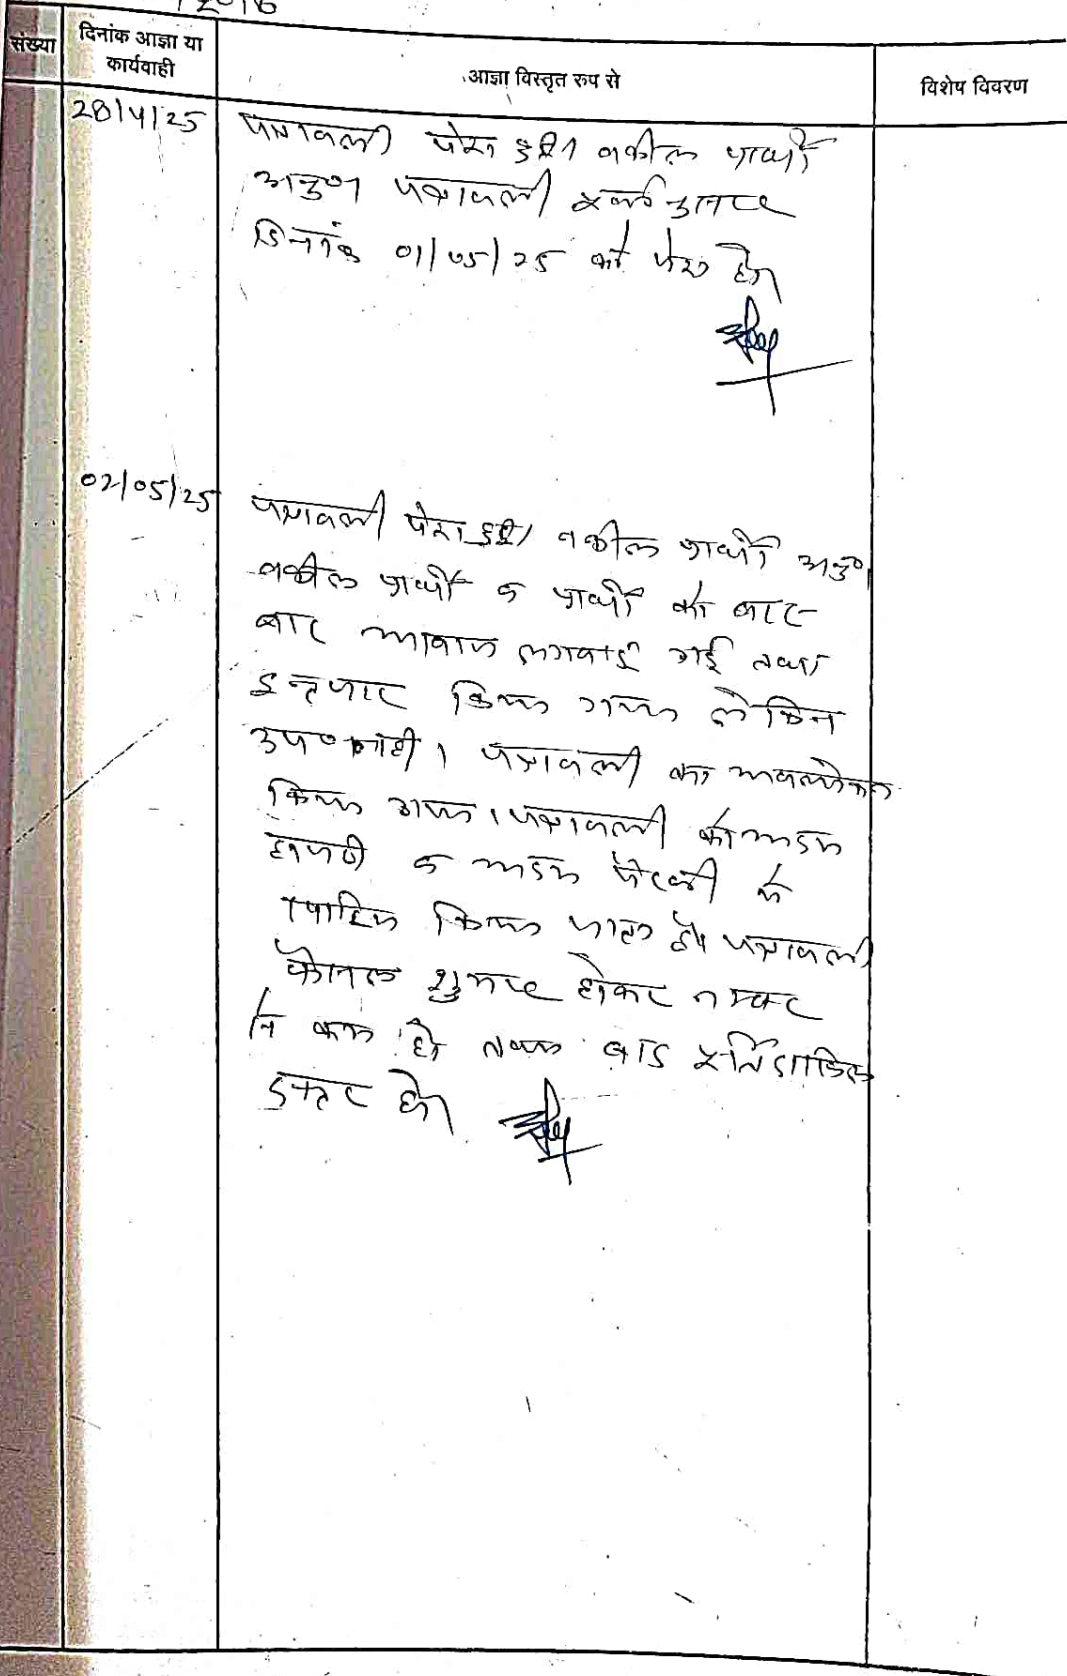 2016
संख्या
दिनांक आज्ञा या
कार्यवाही
आज्ञा विस्तृत रूप से
विशेष विवरण
28/4/25
पत्रावली पेश हुई। वकील प्रार्थी
अनु० पत्रावली
दिनांक 01/05/25 को पेश हो।
02/05/25
पत्रावली पेश हुई। वकील प्रार्थी अनु०
वकील प्रार्थी व प्रार्थी को बार
बार आवाज लगवाई गई तथा
इन्तजार किया गया लेकिन
पत्रावली का अवलोकन
किया गया। पत्रावली को अदम
हाजरी व अदम पैरवी में
खारिज किया जाता है। पत्रावली
फैसल शुमार होकर नम्बर
से कम हो तथा बाद
दफ्तर हो।